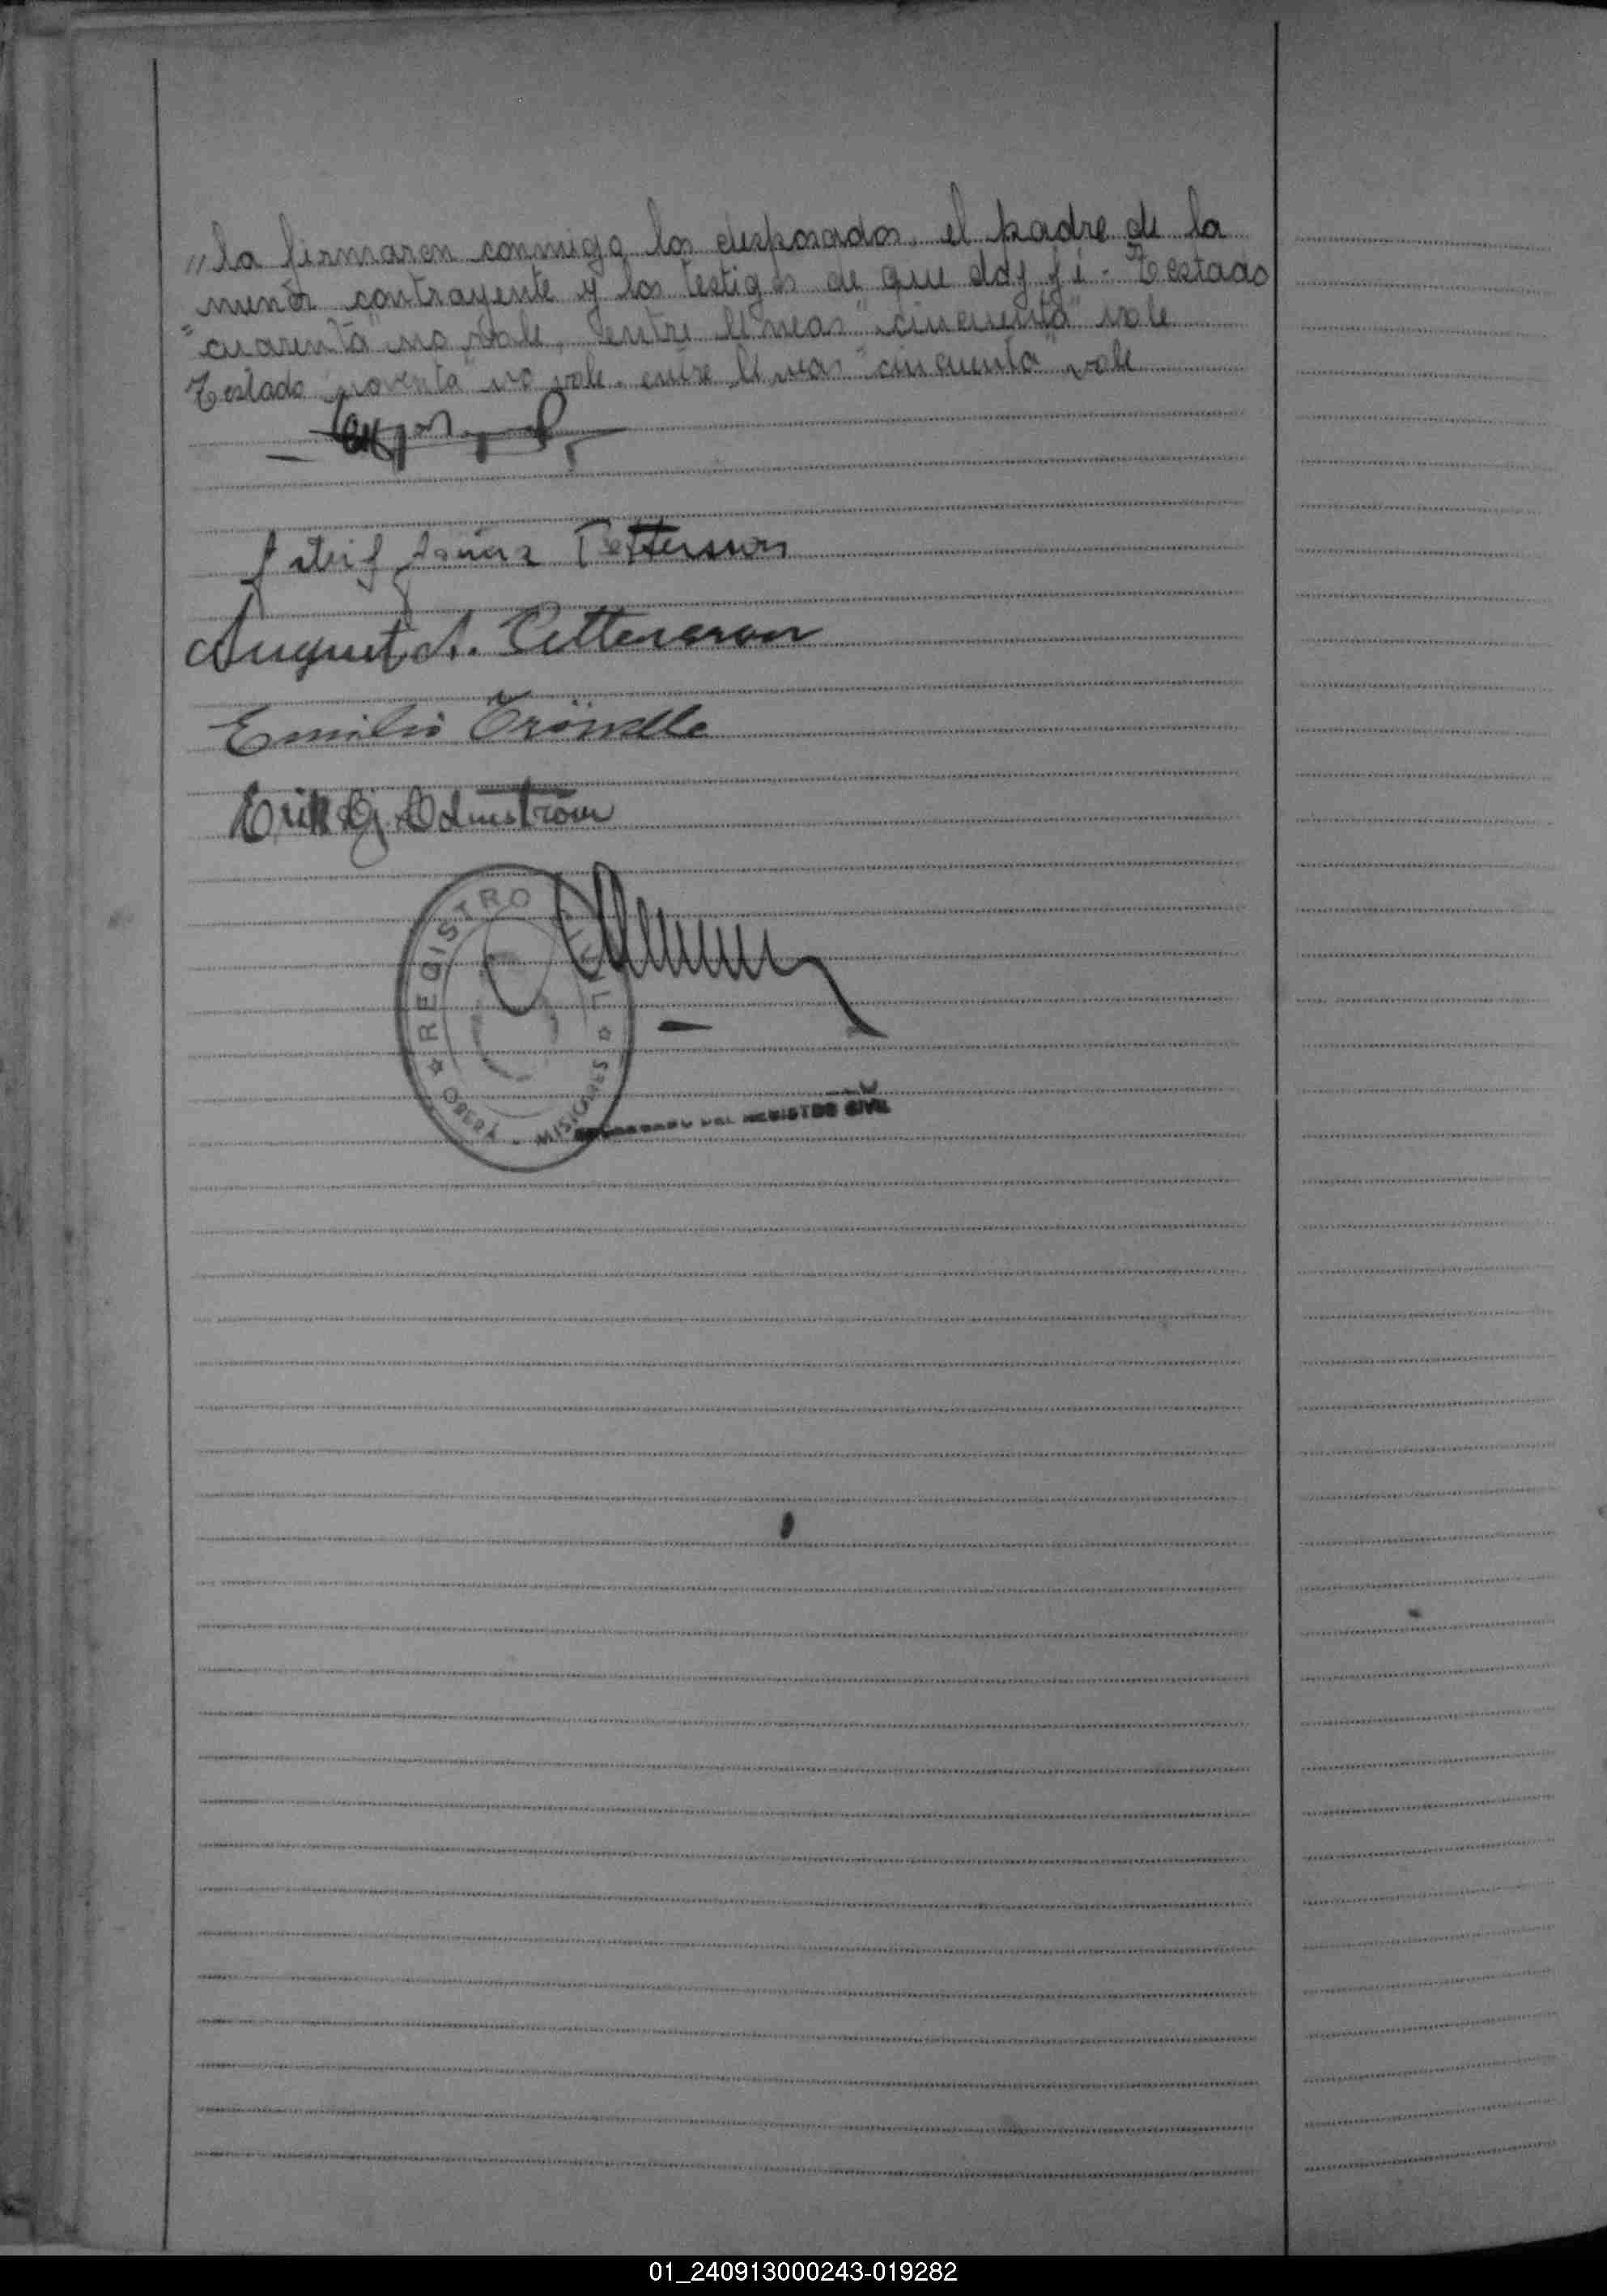 "la firmaron conmigo los desposados, el padre de la
menor contrayente y los testigos de que doy fé - Testado
"cuarenta" no vale, entre lineas "cincuenta" vale
Testado "noventa" no vale. entre lineas "cincuenta" vale
Pettersson
August A. Pettersson
Emilio Tröndle
Erik G.
REGISTRO CIVIL
OBERÁ - MISIONES
DEL REGISTRO CIVIL
01_240913000243-019282